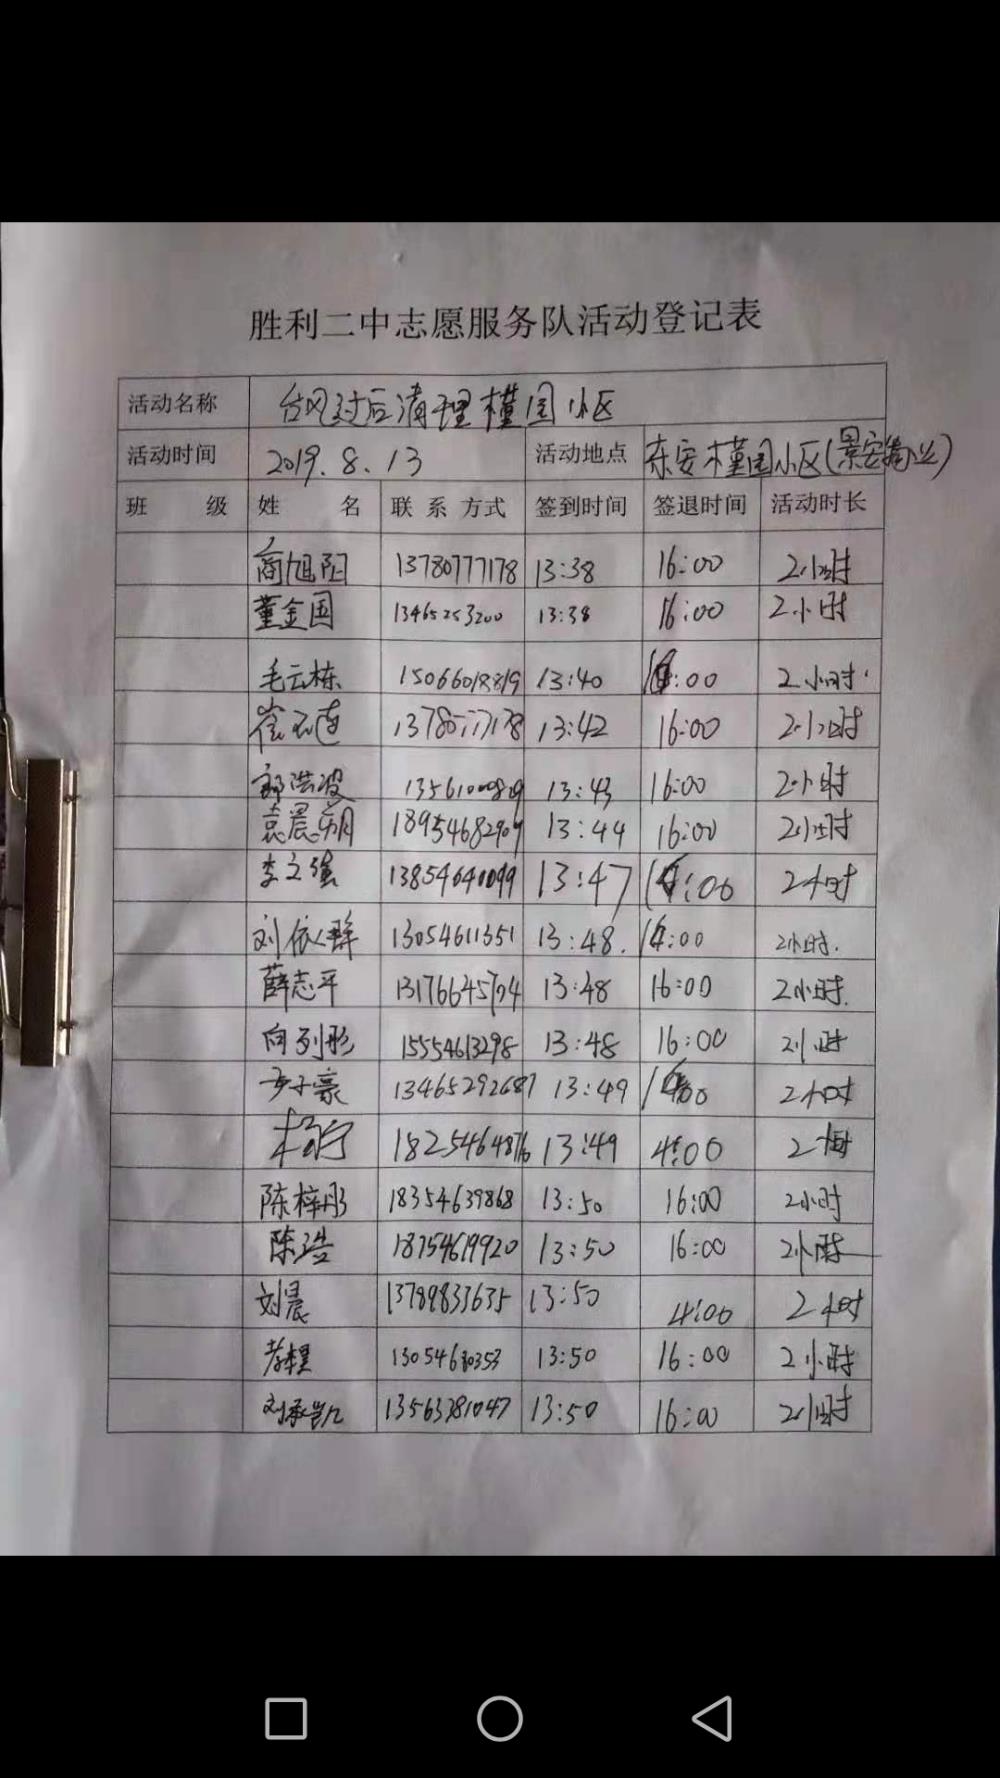 胜利二中志愿服务队活动登记表
活动名称 台风过后清理槿园小区
活动时间 2019.8.13 活动地点 东安槿园小区(景安物业)
班 级 姓 名 联 系 方式 签到时间 签退时间 活动时长
商旭阳 13780777178 13:38 16:00 2小时
董金国 13465253200 13:38 16:00 2小时
毛云栋 15066018819 13:40 16:00 2小时
13:42 16:00 2小时
郭洪波 13:43 16:00 2小时
袁晨朔 18954682909 13:44 16:00 2小时
李文强 13854640099 13:47 16:00 2小时
刘依群 13054611351 13:48 16:00 2小时
薛志平 13:48 16:00 2小时
向列彤 15554613298 13:48 16:00 2小时
子豪 13465292687 13:49 2小时
杨宁 18254648716 13:49 4:00 2小时
陈梓彤 18354639868 13:50 16:00 2小时
陈浩 18754619920 13:50 16:00 2小时
刘晨 13789833635 13:50 4:00 2小时
13:50 16:00 2小时
刘承凯 13563381047 13:50 16:00 2小时